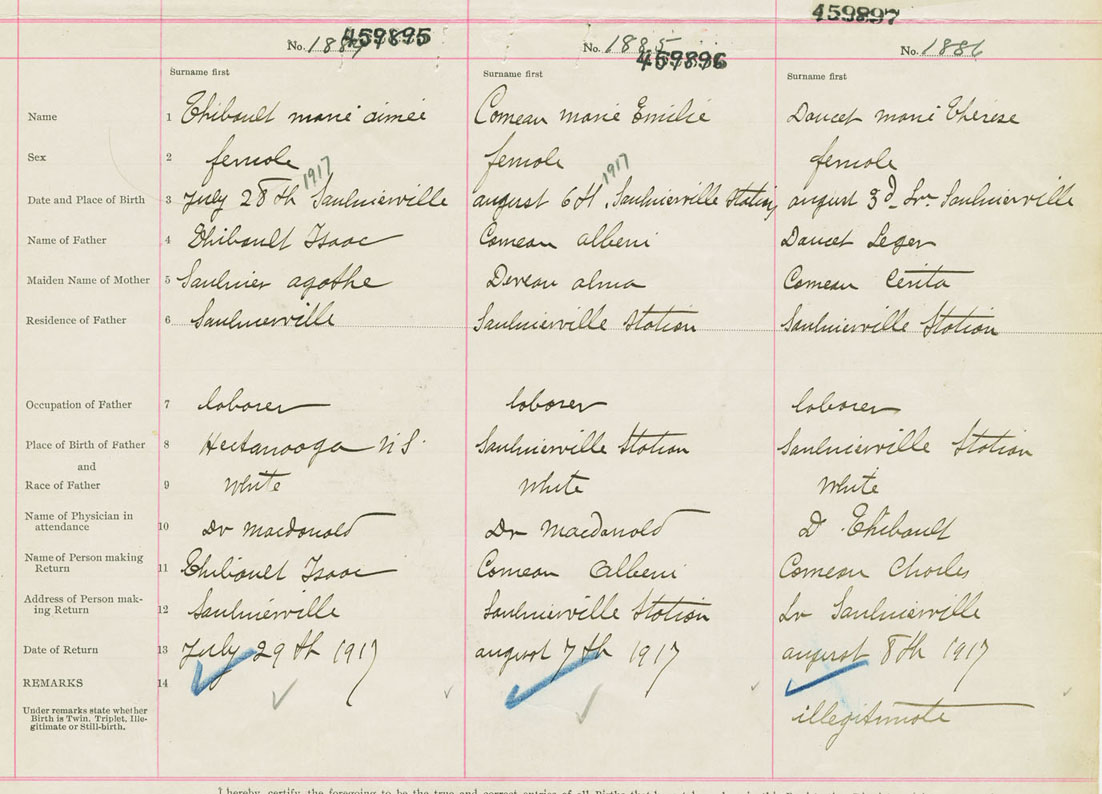 459897
No. 1884 459895 No. 1885 459896 No. 1886
Surname first Surname first Surname first
Name 1 Thibault marie aimée Comeau marie Emilie Doucet marie Therese
Sex 2 female female female
Date and Place of Birth 3 July 28th 1917 Saulnierville august 6th 1917 Saulnierville Station august 3d Lr. Saulnierville
Name of Father 4 Thibault Isaac Comeau albeni Doucet Leger
Maiden Name of Mother 5 Saulnier agathe Deveau alma Comeau Cerita
Residence of Father 6 Saulnierville Saulnierville Station Saulnierville Station
Occupation of Father 7 laborer laborer laborer
Place of Birth of Father 8 Hectanooga N S. Saulnierville Station Saulnierville Station
and
Race of Father 9 White White White
Name of Physician in
attendance 10 Dr Macdonald Dr Macdonald D Thibault
Name of Person making
Return 11 Thibault Isaac Comeau Albeni Comeau Charles
Address of Person mak-
ing Return 12 Saulnierville Saulnierville Station Lr Saulnierville
Date of Return 13 July 29th 1917 august 7th 1917 august 8th 1917
REMARKS 14
Under remarks state whether
Birth is Twin, Triplet, Ille-
gitimate or Still-birth.
illegitimate
I hereby certify the foregoing to be the true and correct entries of all Births that